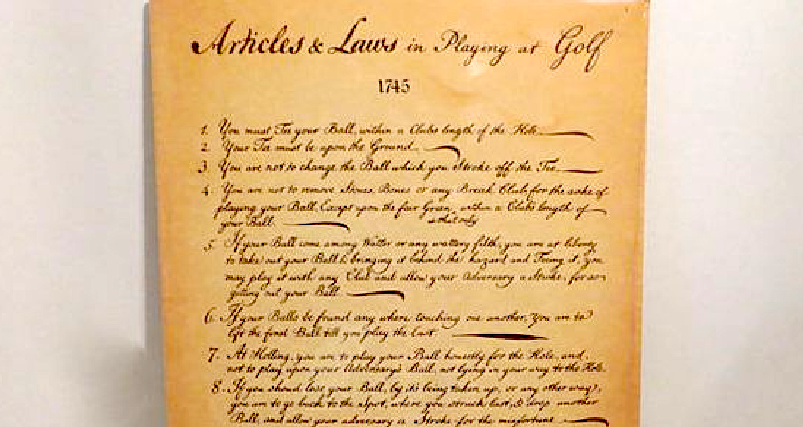 Articles & Laws in Playing at Golf
1745
1. You must Tee your Ball, within a Clubs length of the Hole.
2. Your Tee must be upon the Ground.
3. You are not to change the Ball which you Stroke off the Tee.
4. You are not to remove Stones, Bones or any Break Club, for the sake of
playing your Ball, Except upon the fair Green, within a Clubs length of
your Ball. & that only
5. If your Ball come among Watter or any wattery filth, you are at liberty
to take out your Ball & bringing it behind the hazard and Teeing it, you
may play it with any Club and allow your Adversary a Stroke, for so
getting out your Ball.
6. If your Balls be found any where touching one another, You are to
lift the first Ball till you play the last.
7. At Holling, you are to play your Ball honestly for the Hole, and,
not to play upon your Adversary's Ball, not lying in your way to the Hole.
8. If you should lose your Ball, by its being taken up, or any other way,
you are to go back to the Spot, where you struck last, & drop another
Ball, and allow your adversary a Stroke for the misfortune